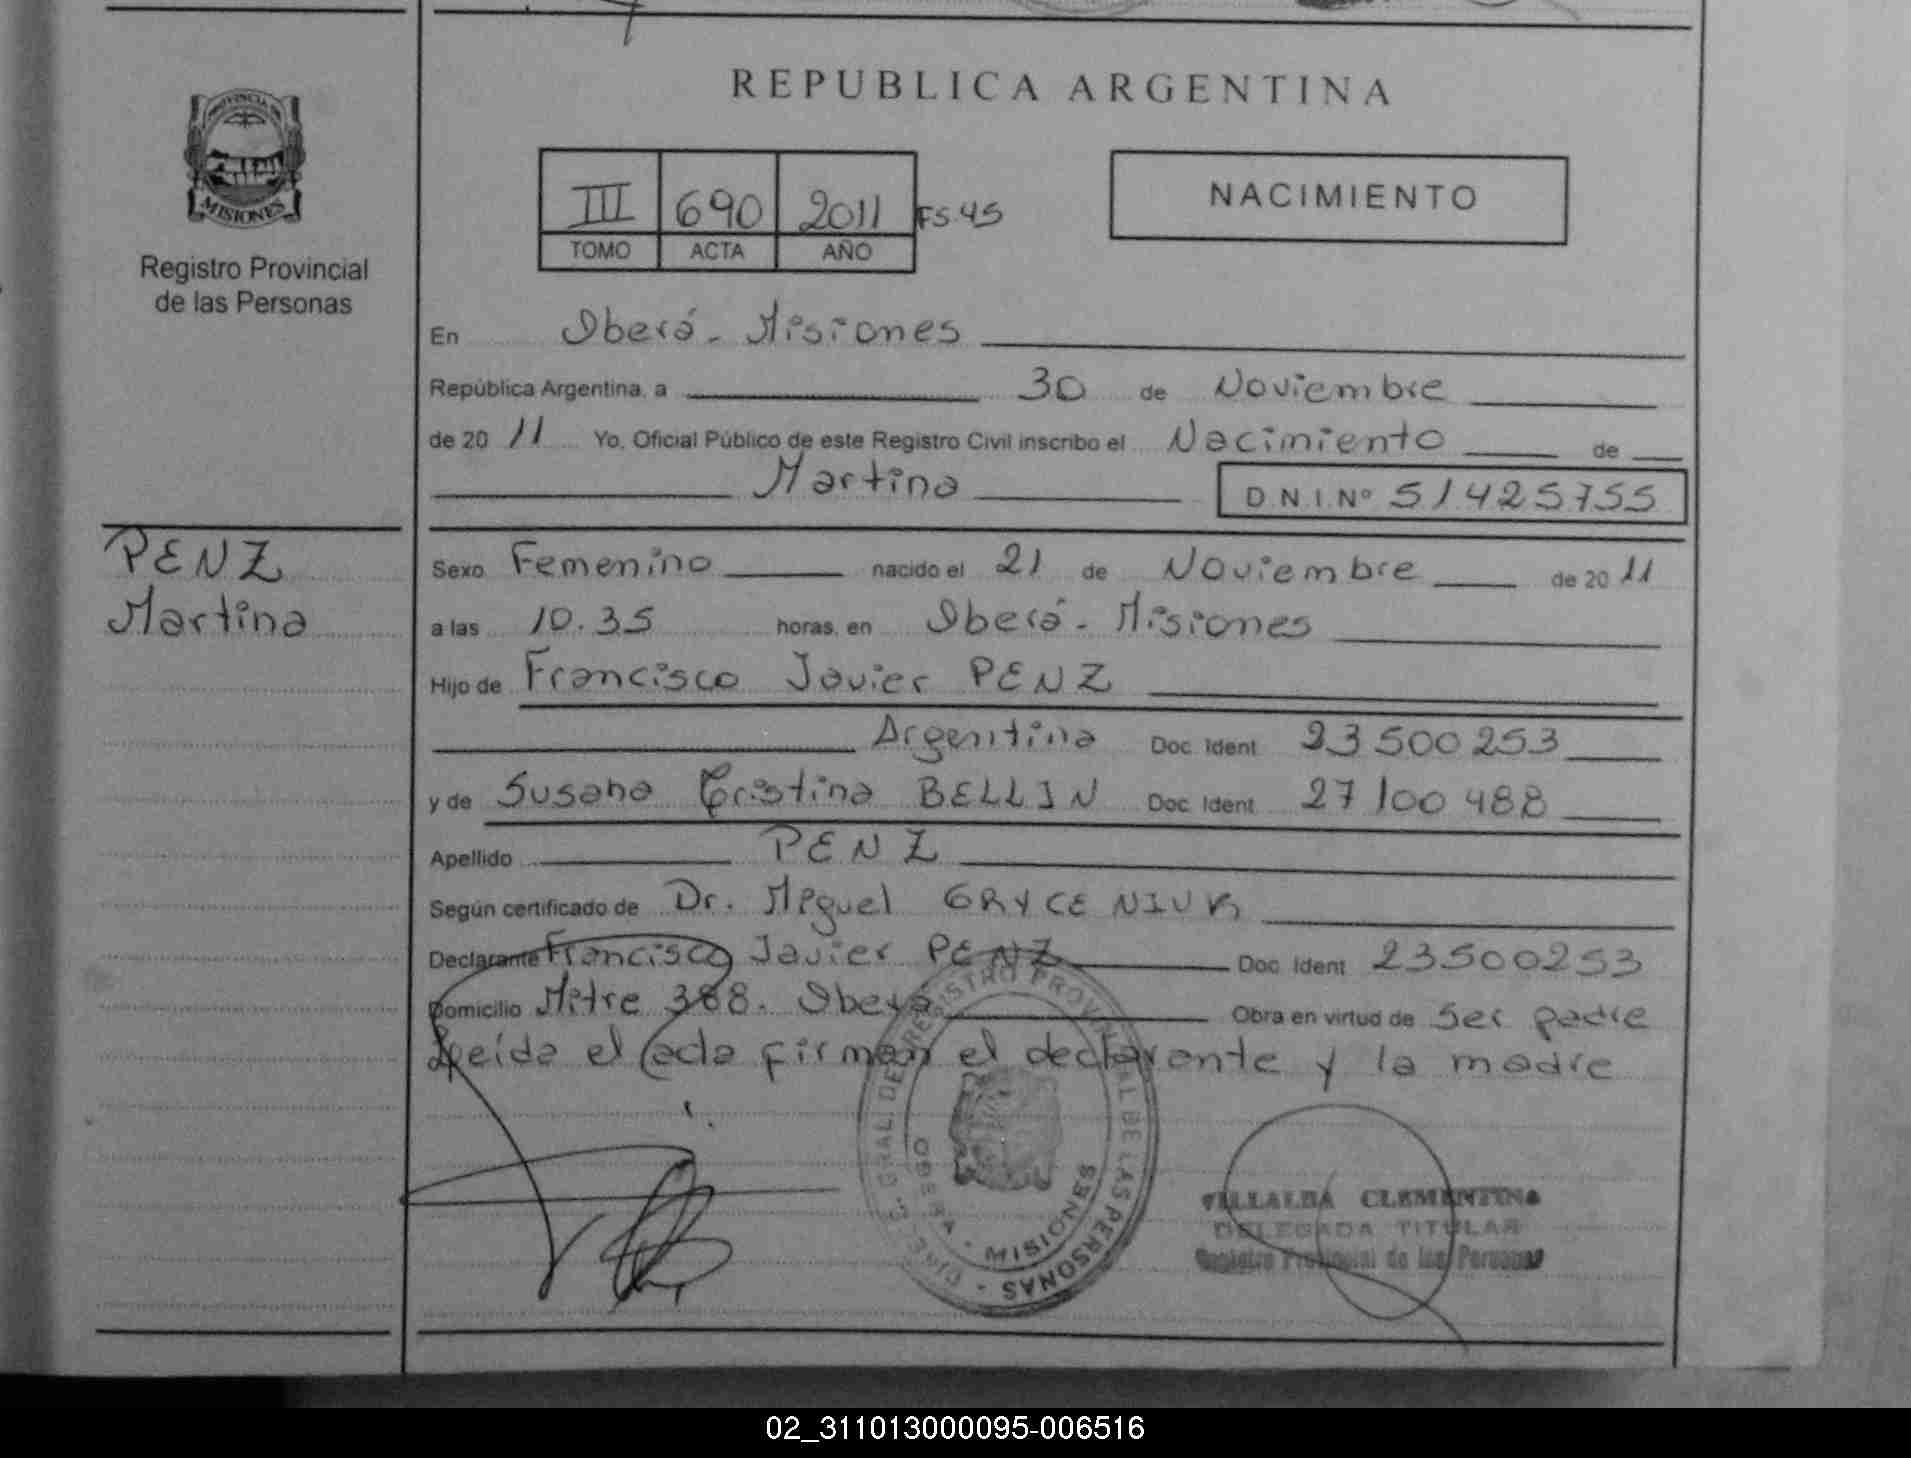 REPUBLICA ARGENTINA
PROVINCIA DE
MISIONES
Registro Provincial
de las Personas
III 690 2011 FS.45
TOMO ACTA AÑO
NACIMIENTO
En Oberá - Misiones
República Argentina, a 30 de Noviembre
de 20 11 Yo, Oficial Público de este Registro Civil inscribo el Nacimiento de
Martina
D.N.I.Nº 51425755
PENZ
Martina
Sexo Femenino nacido el 21 de Noviembre de 20 11
a las 10.35 horas, en Oberá - Misiones
Hijo de Francisco Javier PENZ
Argentina Doc. Ident 23500253
y de Susana Cristina BELLIN Doc. Ident. 27100488
Apellido PENZ
Según certificado de Dr. Miguel GRYCENIUK
Declarante Francisco Javier PENZ Doc. Ident 23500253
Domicilio Mitre 388. Oberá Obra en virtud de Ser padre
Leída el acta firman el declarante y la madre
GRAL. DEL REGISTRO PROVINCIAL DE LAS PERSONAS
MISIONES
VILLALBA CLEMENTINA
DELEGADA TITULAR
Registro Provincial de las Personas
02_311013000095-006516